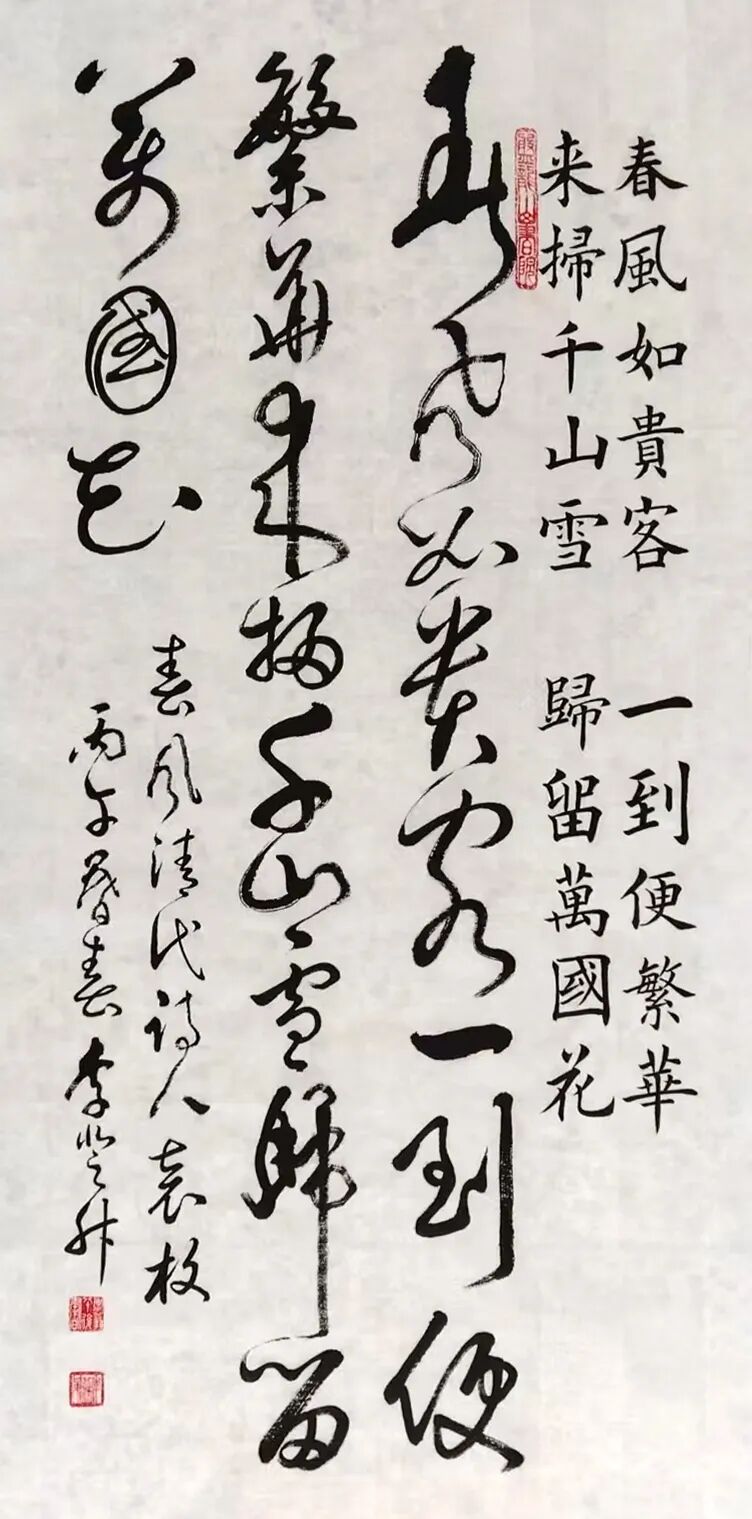 春風如貴客 一到便繁華
来掃千山雪 歸留萬國花
春風如貴客一到便
繁華来掃千山雪歸留
萬國花
春风清代诗人袁枚
丙午暮春李